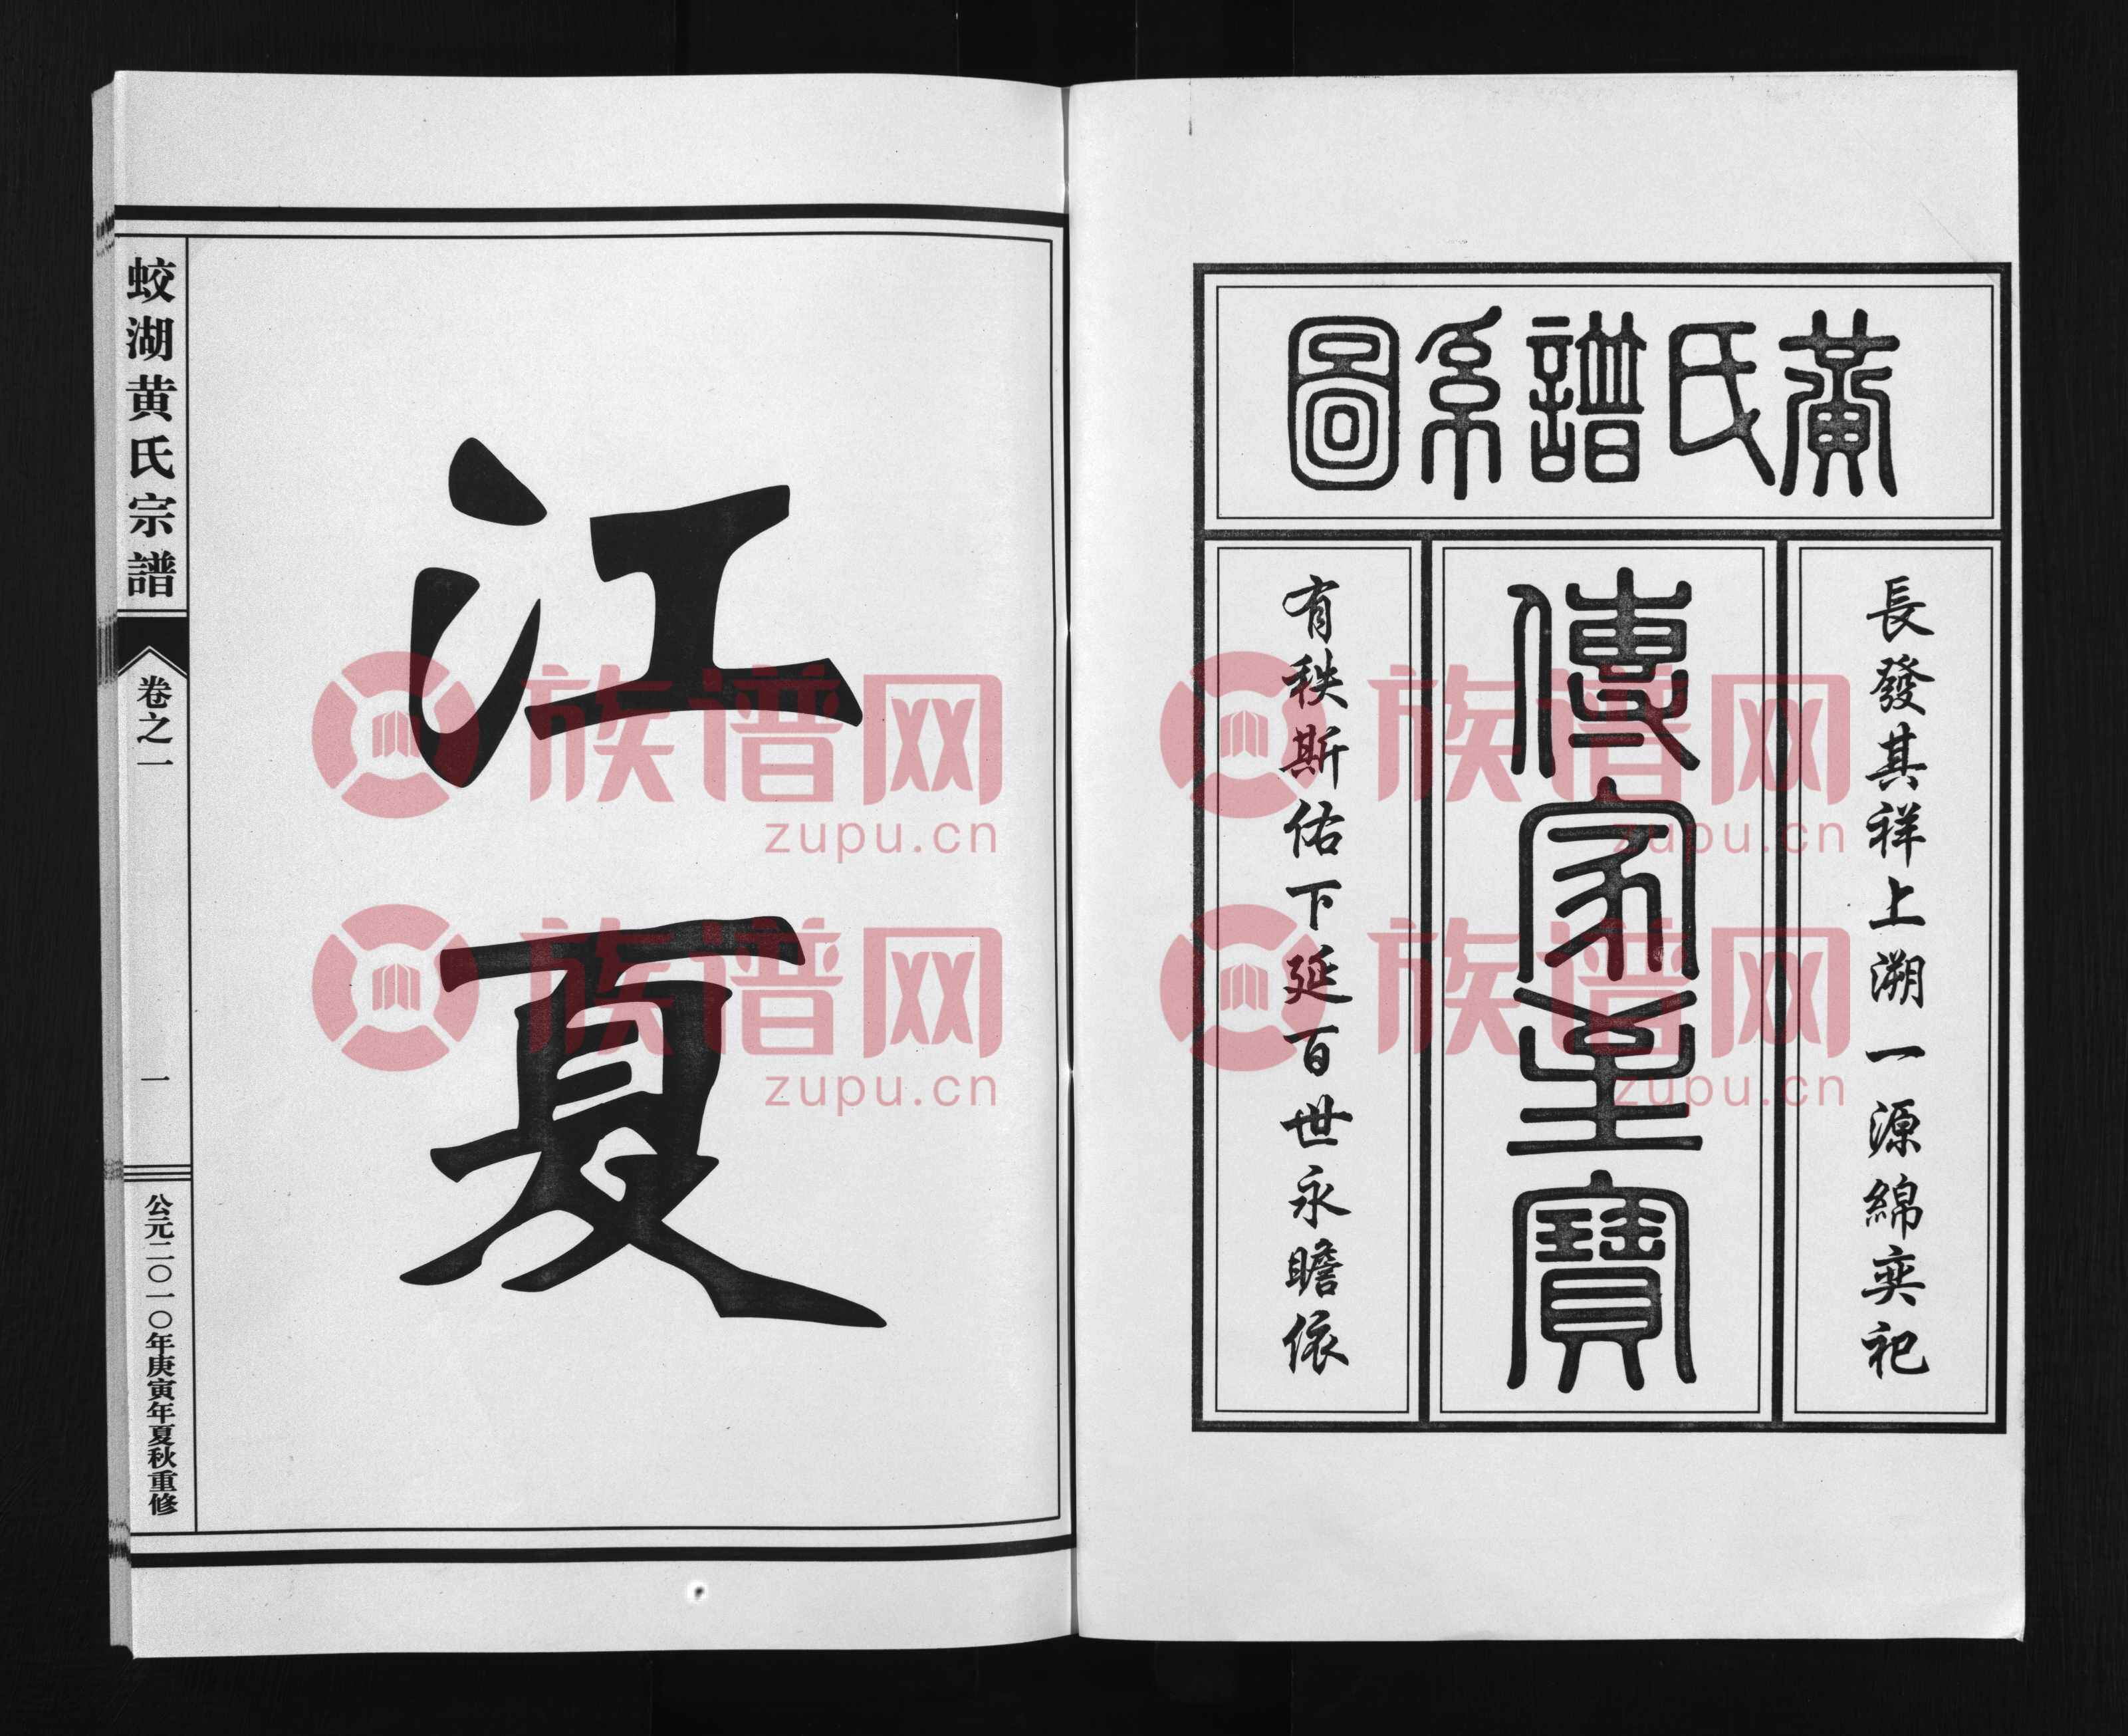 黃氏譜系圖
長發其祥上溯一源綿奕祀
傳家至寶
有秩斯佑下延百世永瞻依
江夏
蛟湖黄氏宗譜
卷之一
一
公元二〇一〇年庚寅年夏秋重修
族谱网
zupu.cn
族谱网
zupu.cn
族谱网
zupu.cn
族谱网
zupu.cn